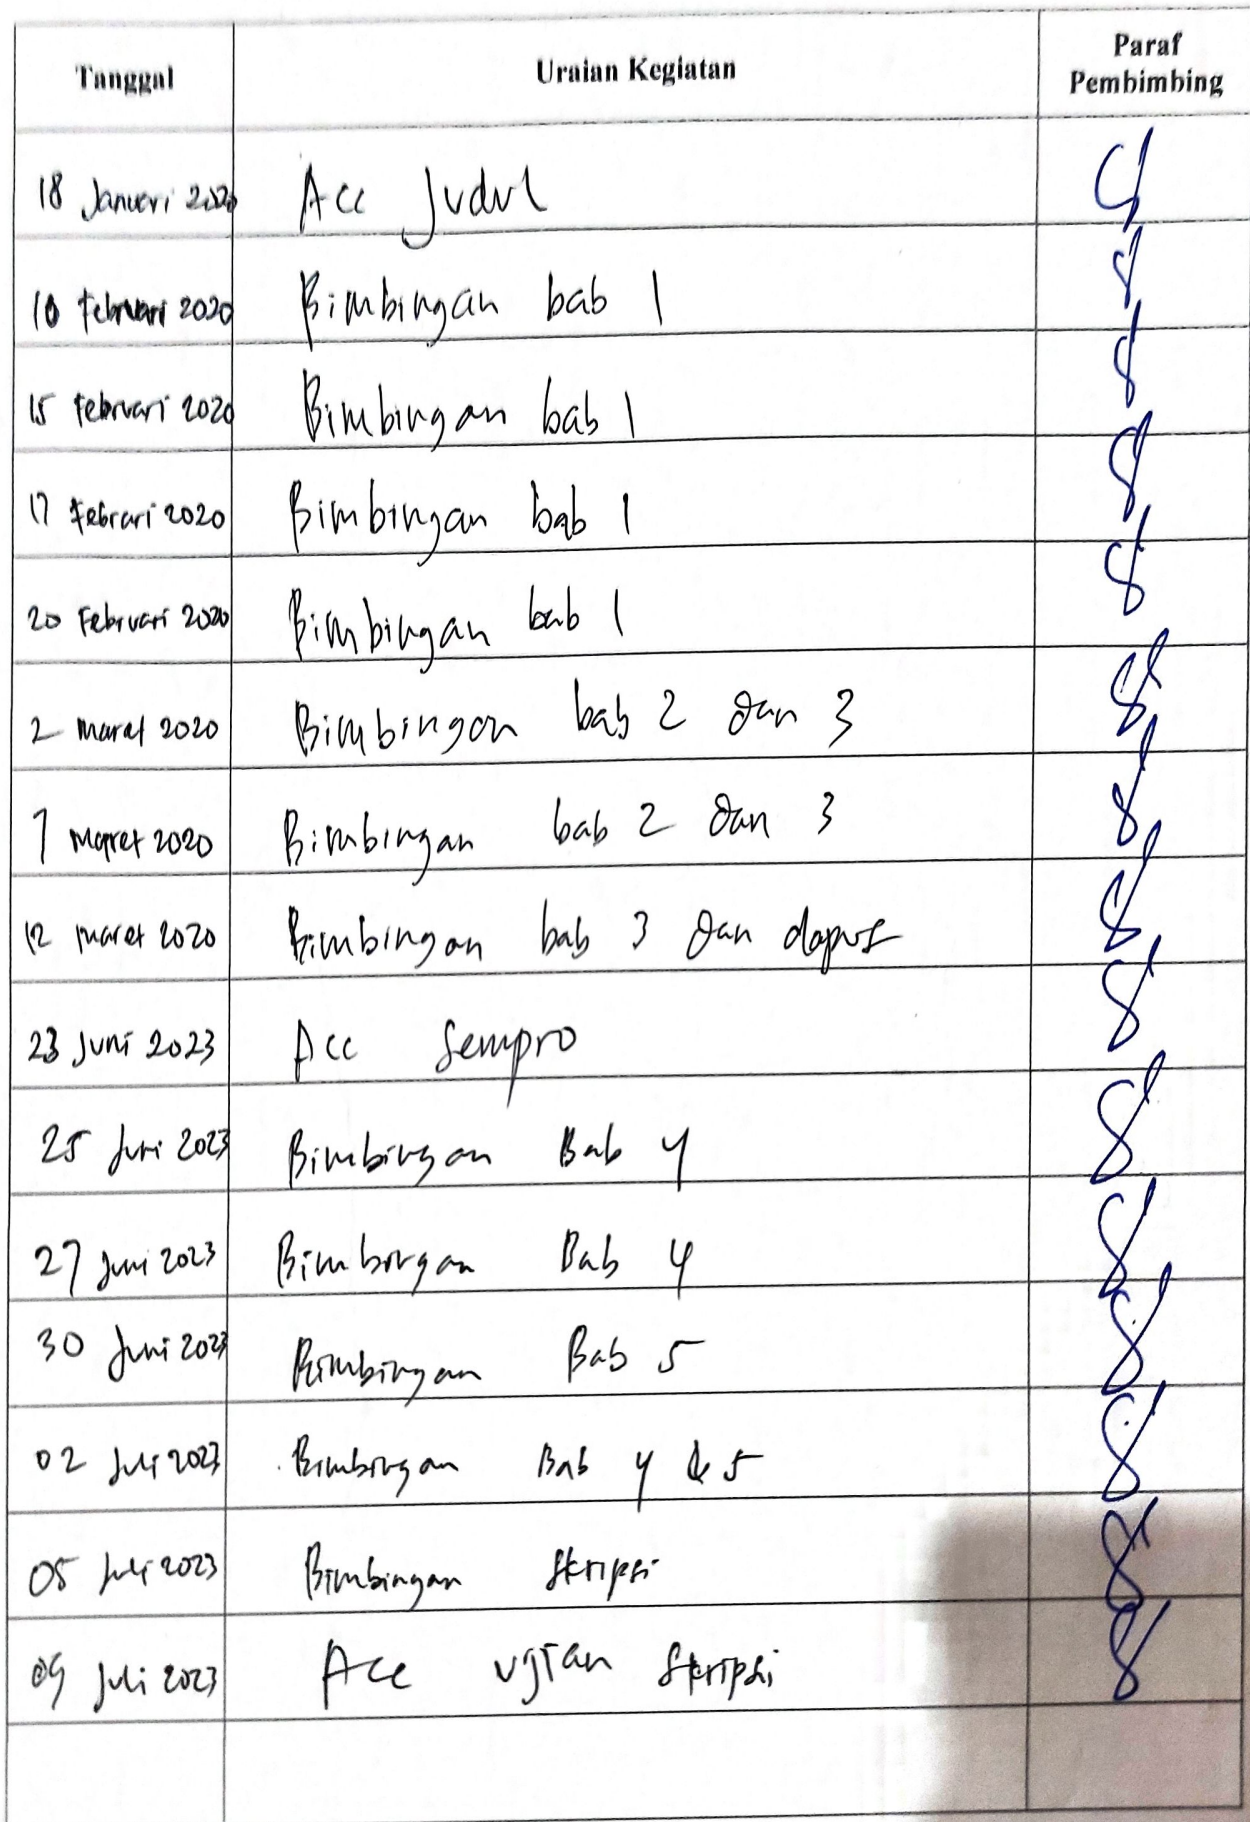 Tanggal Uraian Kegiatan Paraf Pembimbing
18 Januari 2020 Acc Judul
10 Februari 2020 Bimbingan bab 1
15 Februari 2020 Bimbingan bab 1
17 Febrari 2020 Bimbingan bab 1
20 Februari 2020 Bimbingan bab 1
2 maret 2020 Bimbingan bab 2 dan 3
7 maret 2020 Bimbingan bab 2 dan 3
12 maret 2020 Bimbingan bab 3 dan dapus
23 Juni 2023 Acc Sempro
25 Juni 2023 Bimbingan Bab 4
27 Juni 2023 Bimbingan Bab 4
30 Juni 2023 Bimbingan Bab 5
02 Juli 2023 Bimbingan Bab 4 & 5
05 Juli 2023 Bimbingan Skripsi
09 Juli 2023 Acc ujian Skripsi